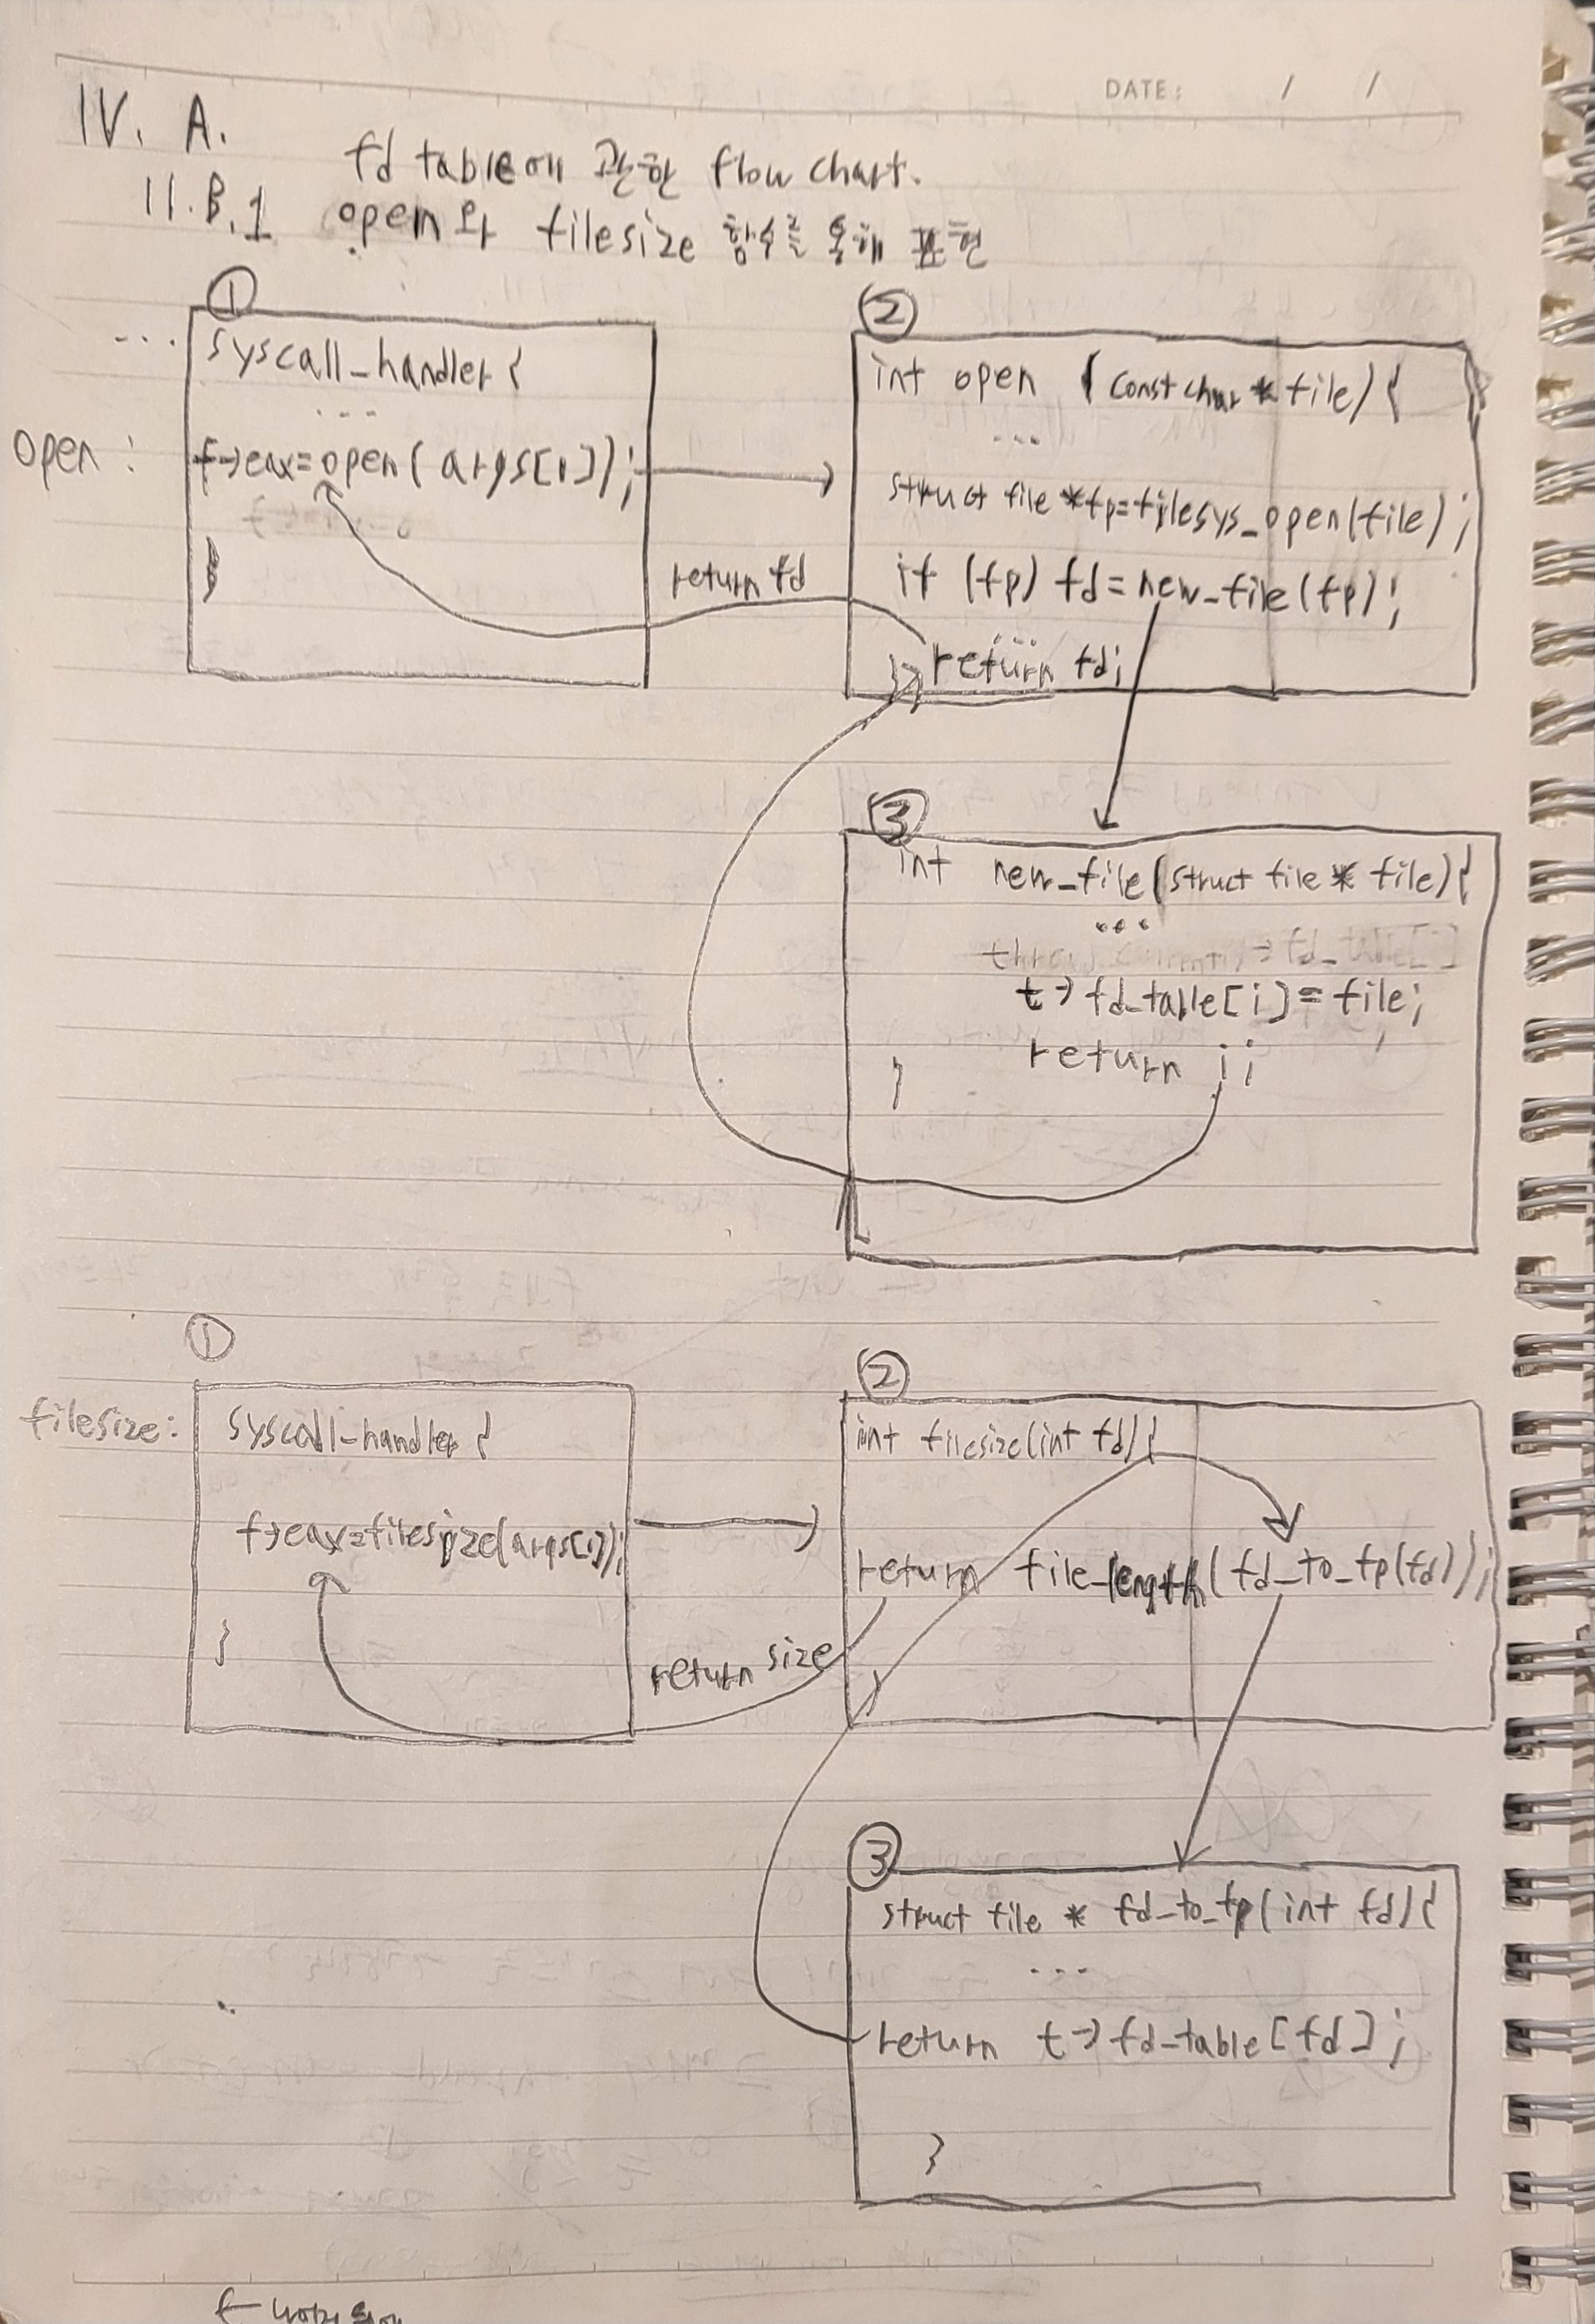 DATE: / /
IV. A.
fd table에 관한 flow chart.
II.B.1 open와 filesize 함수를 통해 표현
①
...
syscall_handler {
...
open :
f->eax=open( args[1]);
}
return fd
②
int open (const char * file) {
...
struct file *fp=filesys_open(file);
if (fp) fd = new_file(fp);
...
return fd;
}
③
int new_file(struct file * file){
...
t-> fd_table[i] = file;
return i;
}
①
filesize:
syscall-handler {
f->eax=filesize(args[1]);
}
return size
②
int filesize(int fd) {
return file_length(fd_to_fp(fd));
}
③
struct file * fd_to_fp(int fd) {
...
return t-> fd_table [fd] ;
}